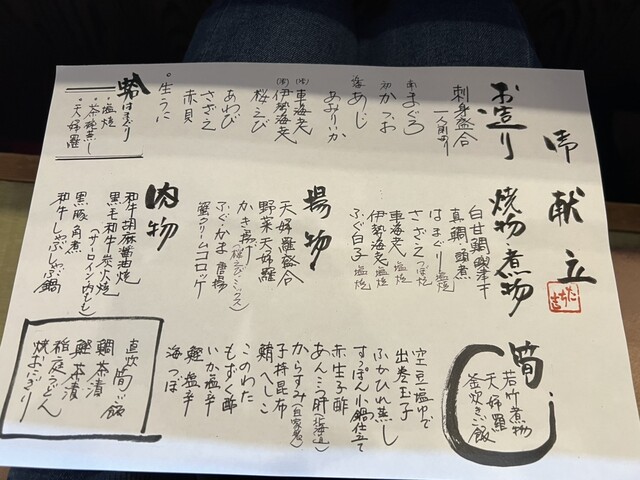 御献立
お造り
刺身盛合
一人前より
まぐろ
初かつお
あじ
あおりいか
(活)車海老
(活)伊勢海老
桜えび
あわび
さざえ
赤貝
生うに
蛤はまぐり
塩焼
茶椀蒸し
天婦羅
焼物・煮物
白甘鯛興津干
真鯛頭煮
はまぐり 塩焼
さざえ つぼ焼
車海老 塩焼
伊勢海老 塩焼
ふぐ白子 塩焼
揚物
天婦羅盛合
野菜天婦羅
かき揚げ(桜えびミックス)
ふぐかま唐揚
蟹クリームコロッケ
肉物
和牛胡麻醤油焼
黒毛和牛炭火焼
(サーロイン・内もも)
黒豚角煮
和牛しゃぶしゃぶ鍋
筍
若竹煮物
天婦羅
釜炊きご飯
空豆塩ゆで
出巻玉子
ふかひれ蒸し
すっぽん小鍋仕立て
赤生子酢
あんこう肝(北海道)
からすみ(自家製)
子持昆布
鯖へしこ
このわた
もずく酢
いか塩辛
鰹塩辛
海つぼ
直炊 筍ご飯
鯛茶漬
鰹茶漬
稲庭うどん
焼おにぎり